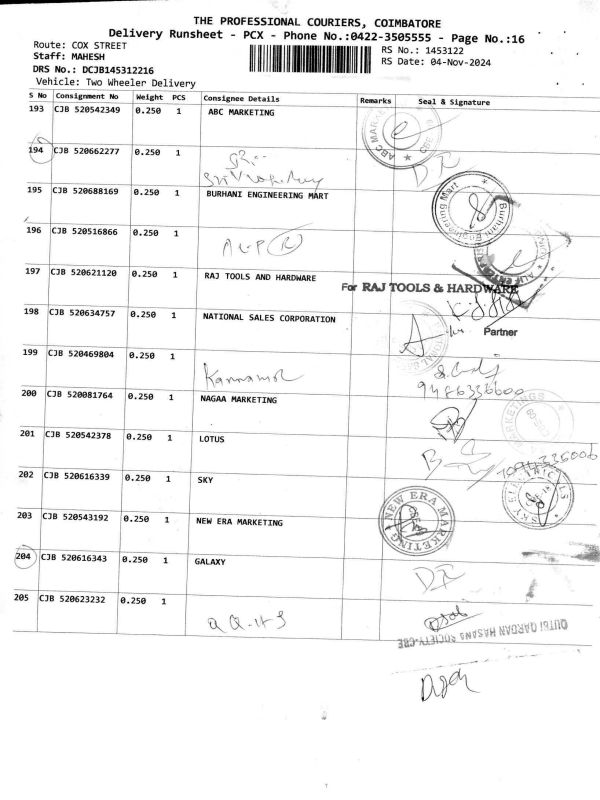 THE PROFESSIONAL COURIERS, COIMBATORE
Delivery Runsheet - PCX - Phone No.:0422-3505555 - Page No.:16
Route: COX STREET
RS No.: 1453122
Staff: MAHESH
RS Date: 04-Nov-2024
DRS No.: DCJB145312216
Vehicle: Two Wheeler Delivery
S No Consignment No Weight PCS Consignee Details Remarks Seal & Signature
193 CJB 520542349 0.250 1 ABC MARKETING
194 CJB 520662277 0.250 1
195 CJB 520688169 0.250 1 BURHANI ENGINEERING MART
Burhani Engineering Mart
196 CJB 520516866 0.250 1
197 CJB 520621120 0.250 1 RAJ TOOLS AND HARDWARE
For RAJ TOOLS & HARDWARE
198 CJB 520634757 0.250 1 NATIONAL SALES CORPORATION
Partner
199 CJB 520469804 0.250 1
9486336600
200 CJB 520081764 0.250 1 NAGAA MARKETING
201 CJB 520542378 0.250 1 LOTUS
202 CJB 520616339 0.250 1 SKY
203 CJB 520543192 0.250 1 NEW ERA MARKETING
NEW ERA MARKETING
204 CJB 520616343 0.250 1 GALAXY
205 CJB 520623232 0.250 1
QUTBI QARDAN HASANA SOCIETY-CBE